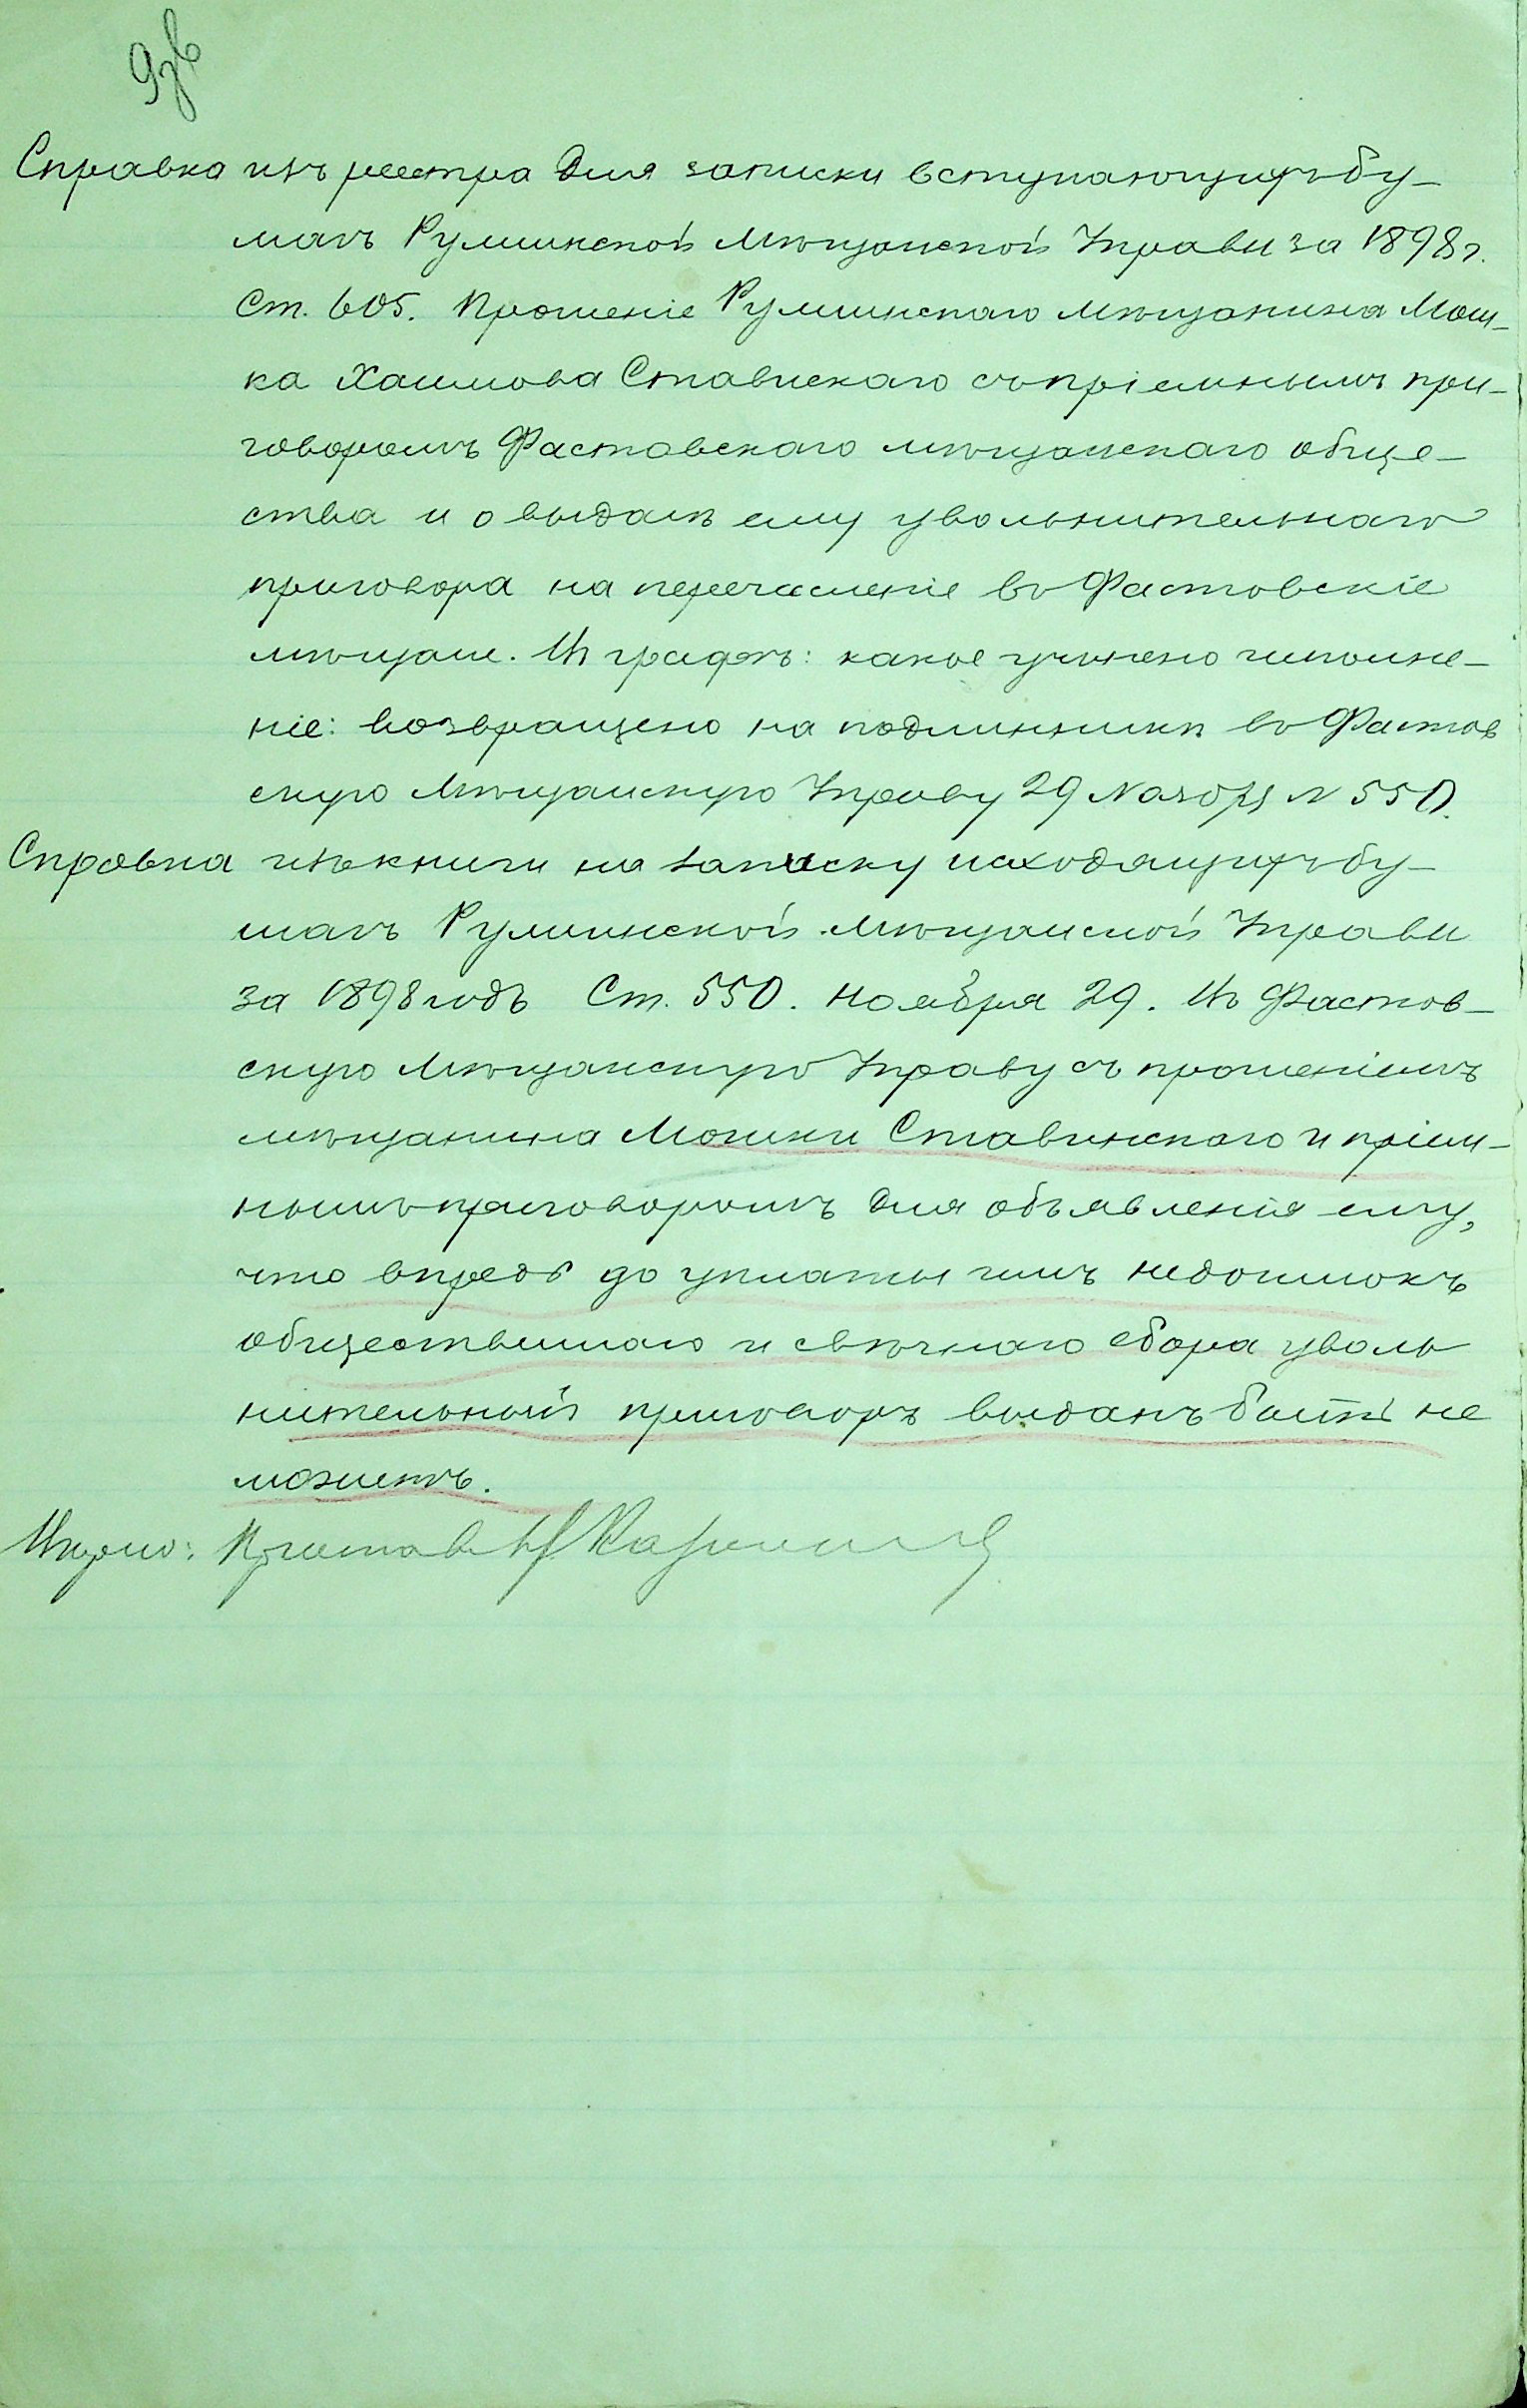 Справка изъ реестра для записки вступающихъ бу-
магъ Румшинской Мѣщанской Управы за 1898 г.
Ст. 605. Прошеніе Румшинскаго мѣщанина Мош-
ка Хаимова Ставискаго съ пріемнымъ при-
говоромъ Фастовскаго мѣщанскаго обще-
ства и о выдачѣ ему увольнительнаго
приговора на перечисленіе въ Фастовскіе
мѣщане. Въ графѣ: какое учинено исполне-
ніе: возвращено на подлинникѣ въ Фастов
скую Мѣщанскую Управу 29 Ноября № 550.
Справка изъ книги на записку исходящихъ бу-
магъ Румшинской Мѣщанской Управы
за 1898 годъ Ст. 550. Ноября 29. Въ Фастов-
скую Мѣщанскую Управу съ прошеніемъ
мѣщанина Мошки Ставинскаго и пріем-
нымъ приговоромъ для объявленія ему,
что впредь до уплаты имъ недоимокъ
общественнаго и свѣчнаго сбора уволь
нительный приговоръ выданъ быть не
можетъ.
Вѣрно: Приставъ